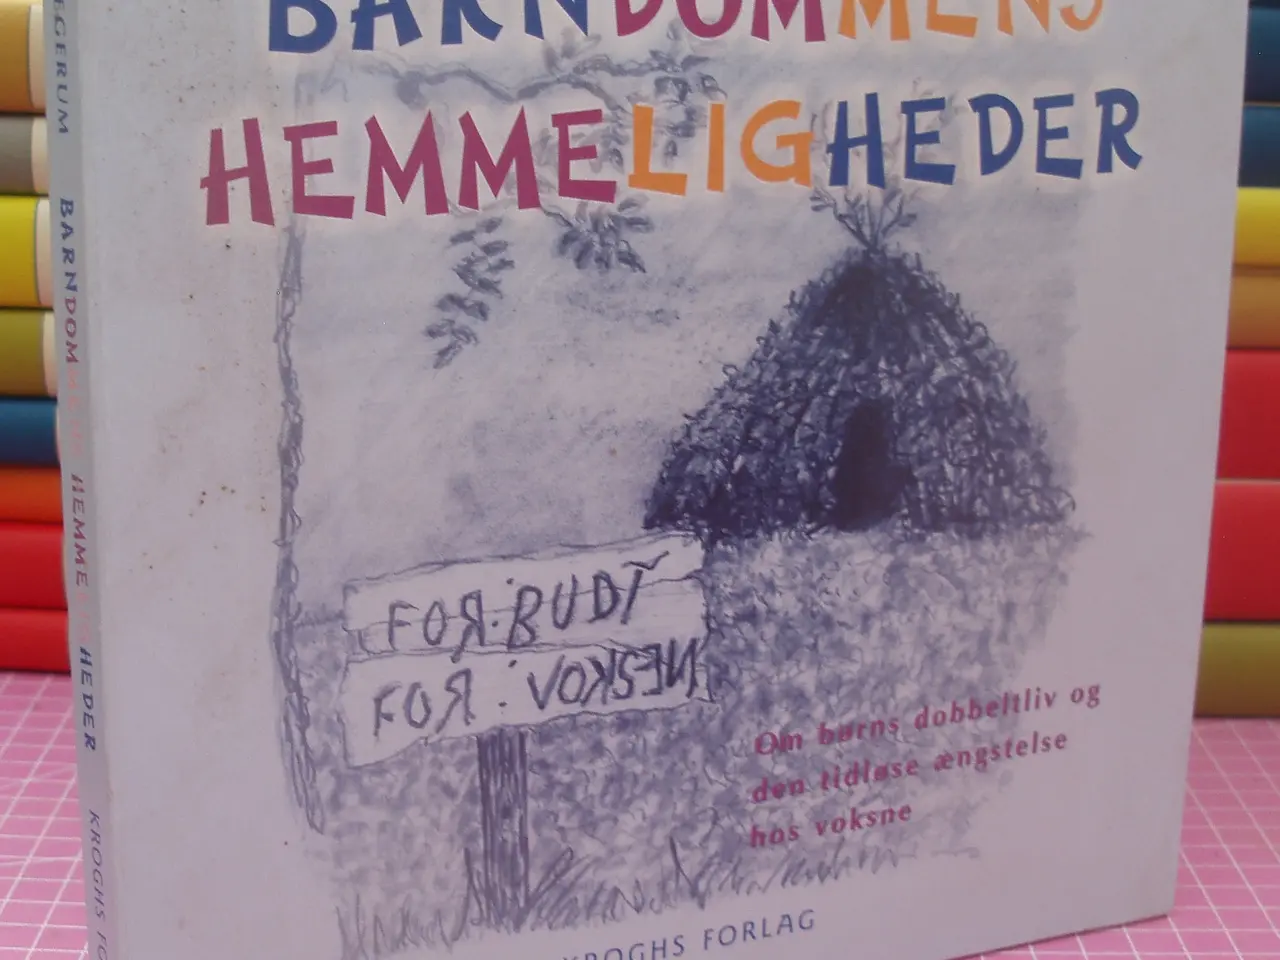 BARNDOMMENS
HEMMELIGHEDER
FOR·BUDT
FOR: VOKSNE
Om børns dobbeltliv og
den tidløse ængstelse
hos voksne
KROGHS FORLAG
EGERUM BARNDOMMENS HEMMELIGHEDER KROGHS FO